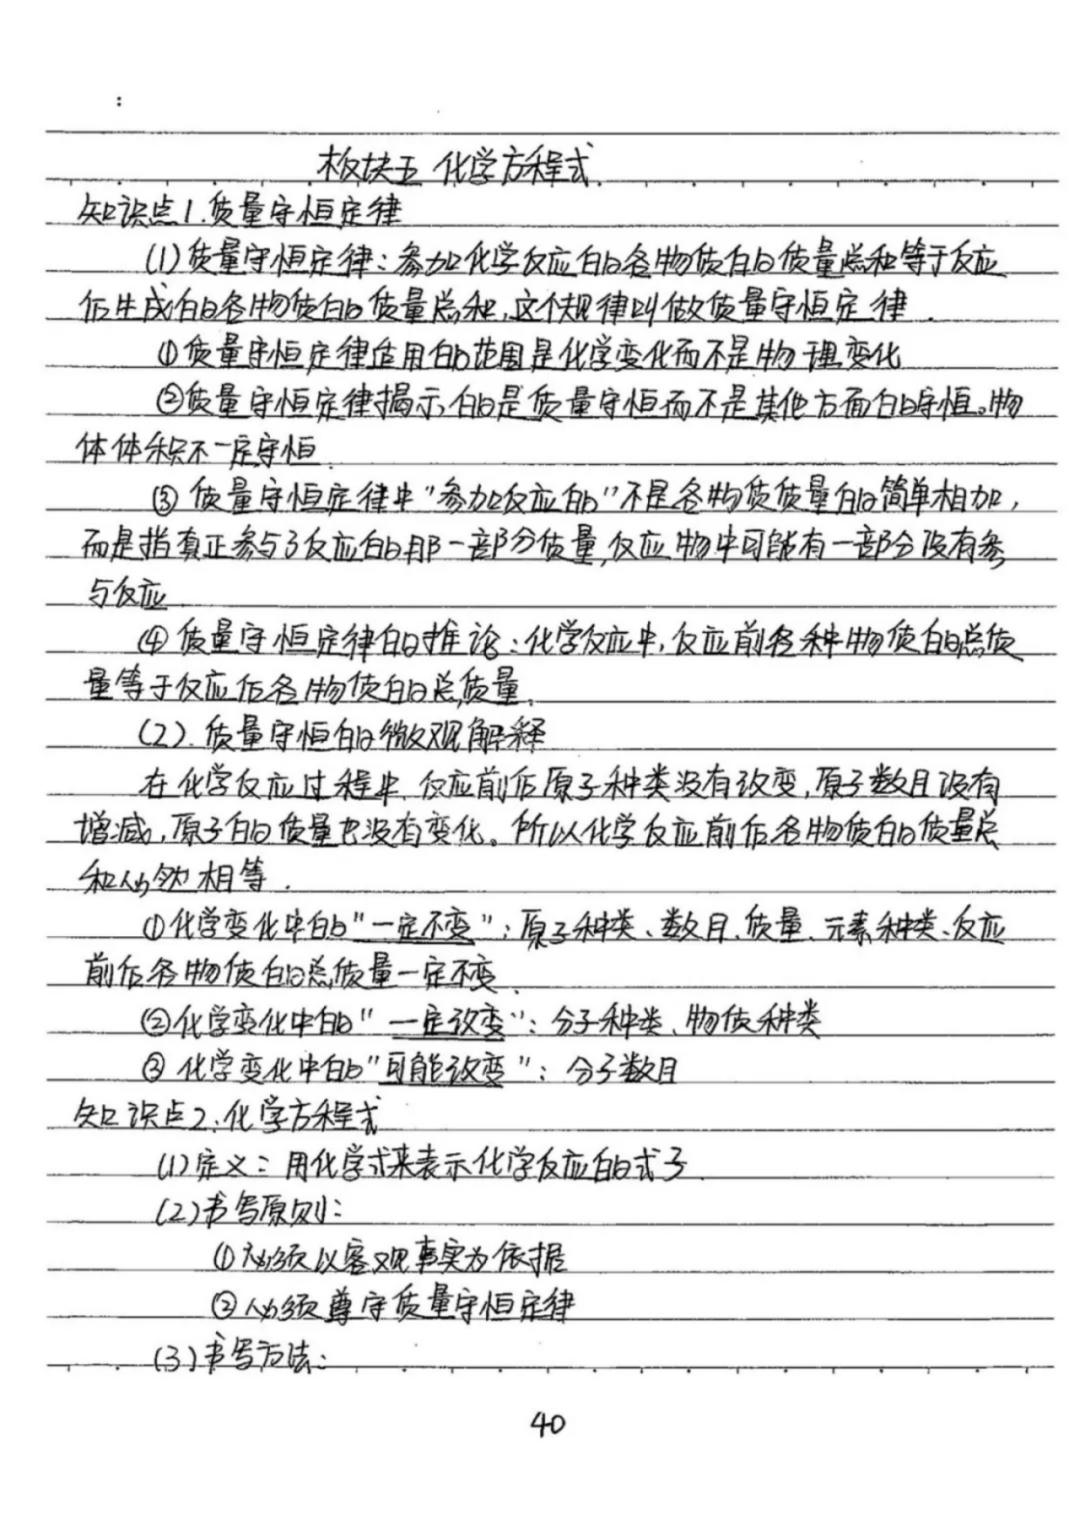 :
板块五 化学方程式
知识点1.质量守恒定律
(1)质量守恒定律:参加化学反应的各物质的质量总和等于反应
后生成的各物质的质量总和,这个规律叫做质量守恒定律.
①质量守恒定律适用的范围是化学变化而不是物理变化
②质量守恒定律揭示的是质量守恒而不是其他方面的守恒。物
体体积不一定守恒.
③质量守恒定律中“参加反应的”不是各物质质量的简单相加,
而是指真正参与了反应的那一部分质量,反应物中可能有一部分没有参
与反应.
④质量守恒定律的推论:化学反应中,反应前各种物质的总质
量等于反应后各物质的总质量.
(2).质量守恒的微观解释
在化学反应过程中,反应前后原子种类没有改变,原子数目没有
增减,原子的质量也没有变化。所以化学反应前后各物质的质量总
和必然相等.
①化学变化中的“一定不变”:原子种类、数目、质量、元素种类、反应
前后各物质的总质量一定不变.
②化学变化中的“一定改变”:分子种类、物质种类
③化学变化中的“可能改变”:分子数目
知识点2.化学方程式
(1)定义:用化学式来表示化学反应的式子.
(2)书写原则:
①必须以客观事实为依据
②必须尊守质量守恒定律
(3)书写方法:
40